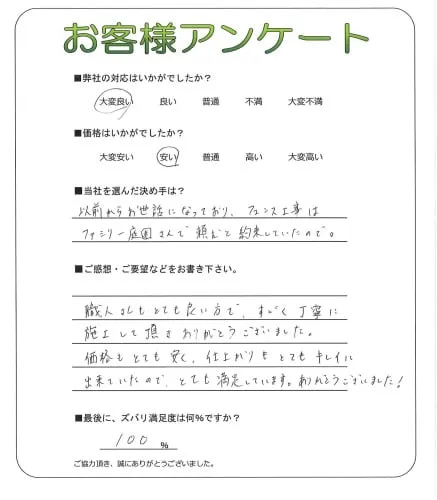 お客様アンケート
■弊社の対応はいかがでしたか？
大変良い 良い 普通 不満 大変不満
■価格はいかがでしたか？
大変安い 安い 普通 高い 大変高い
■当社を選んだ決め手は？
以前からお世話になっており、フェンス工事は
ファミリー庭園さんで頼むと約束していたので。
■ご感想・ご要望などをお書き下さい。
職人さんもとても良い方で、すごく丁寧に
施工して頂きありがとうございました。
価格もとても安く、仕上がりもとてもキレイに
出来ていたので、とても満足しています。ありがとうございました！
■最後に、ズバリ満足度は何%ですか？
100 %
ご協力頂き、誠にありがとうございました。